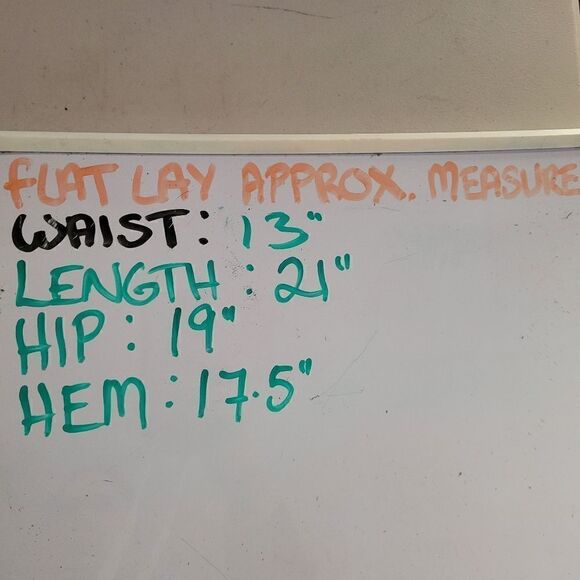 FLAT LAY APPROX. MEASURE
WAIST: 13"
LENGTH: 21"
HIP: 19"
HEM: 17.5"